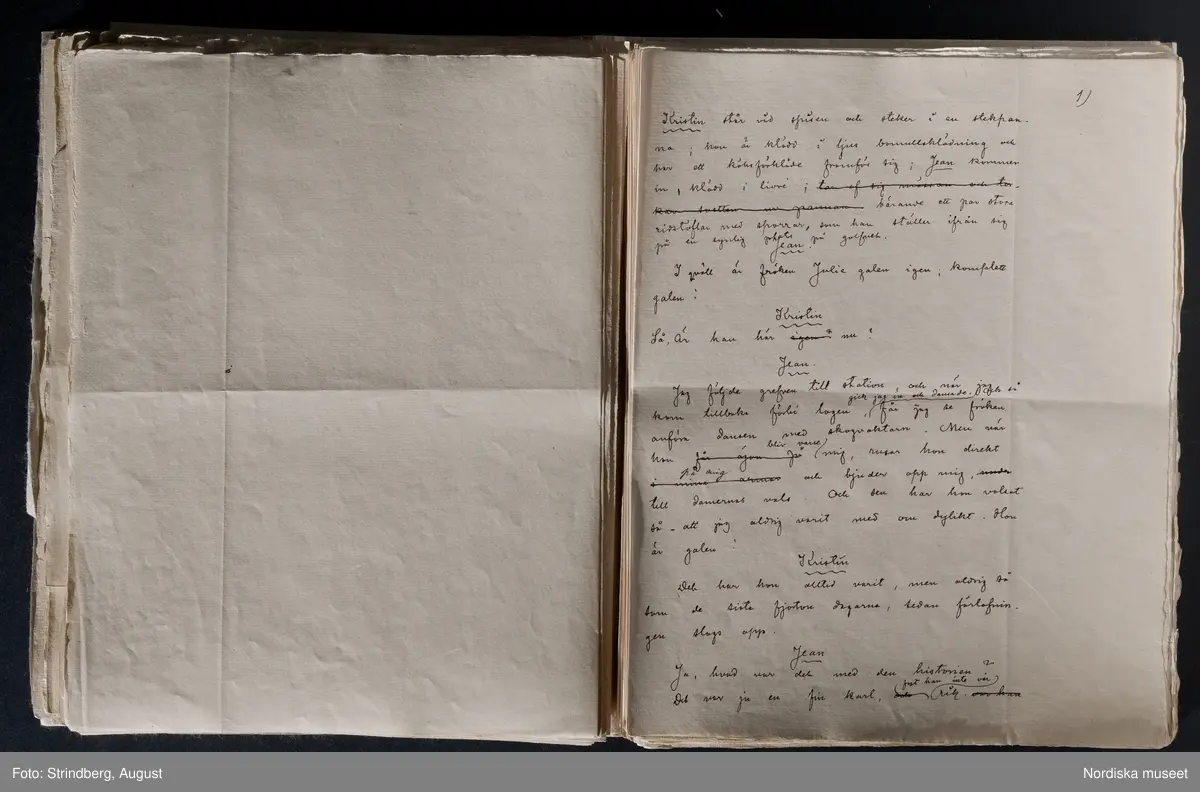 1)
Kristin står vid spisen och steker i en stekpan-
na; hon är klädd i ljus bomullsklädning och
har ett köksförkläde framför sig; Jean kommer
in, klädd i livré; tar af sig mössan och tor-
kar svetten ur pannan bärande ett par stora
ridstöflar med sporrar, som han ställer ifrån sig
på en synlig plats på golfvet.
Jean.
I qväll är fröken Julie galen igen; komplett
galen!
Kristin
Så, är han här igen? nu?
Jean.
Jag följde grefven till station, och när jag
gick jag in och dansade. Och så
kom tillbaka förbi logen, får jag se fröken
anföra dansen med skogvaktarn. Men när
blir varse
hon får ögon på mig, rusar hon direkt
på mig
i mina armar och bjuder opp mig,
till damernas vals. Och sen har hon valsat
så - att jag aldrig varit med om dylikt. Hon
är galen!
Kristin
Det har hon alltid varit, men aldrig så
som de sista fjorton dagarna, sedan förlofnin-
gen slogs opp.
Jean
Ja, hvad var det med den historien?
fast han inte var
Det var ju en fin karl, rik. om han
Foto: Strindberg, August
Nordiska museet